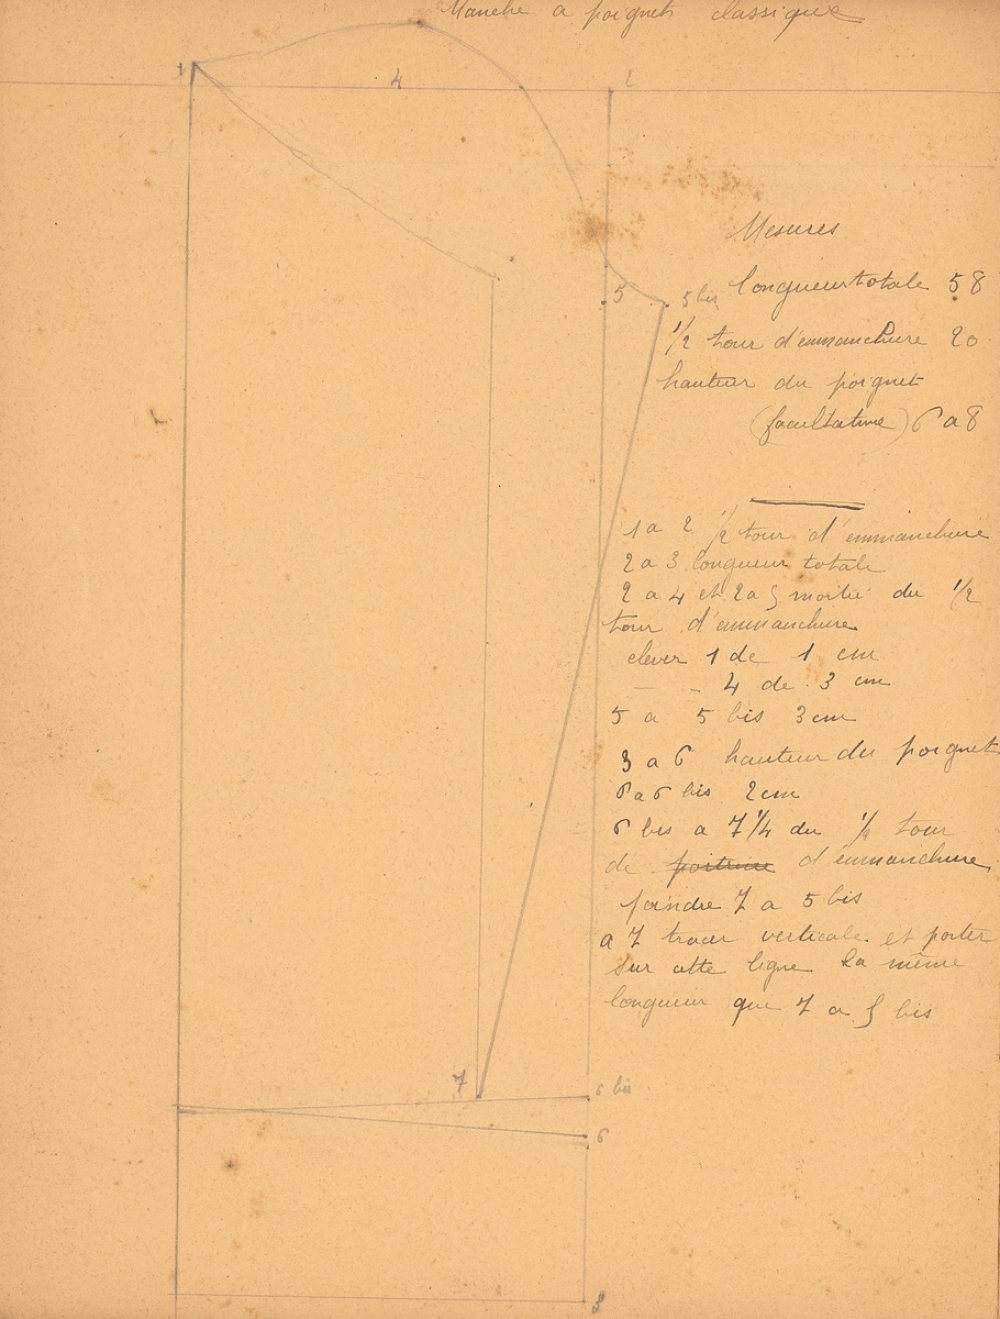 Manche a poignet classique
1
4
2
5
5 bis
Mesures
longueur totale 58
1/2 tour d'emmanchure 20
hauteur du poignet
(facultative) 6 a 8
1 a 2 1/2 tour d'emmanchure
2 a 3 longueur totale
2 a 4 et 2 a 5 moitié du 1/2
tour d'emmanchure
elever 1 de 1 cm
- - 4 de 3 cm
5 a 5 bis 3 cm
3 a 6 hauteur du poignet
6 a 6 bis 2 cm
6 bis a 7 1/4 du 1/2 tour
de poitrine d'emmanchure
joindre 7 a 5 bis
a 7 tracer verticale et porter
sur cette ligne la même
longueur que 7 a 5 bis
7
6 bis
6
3